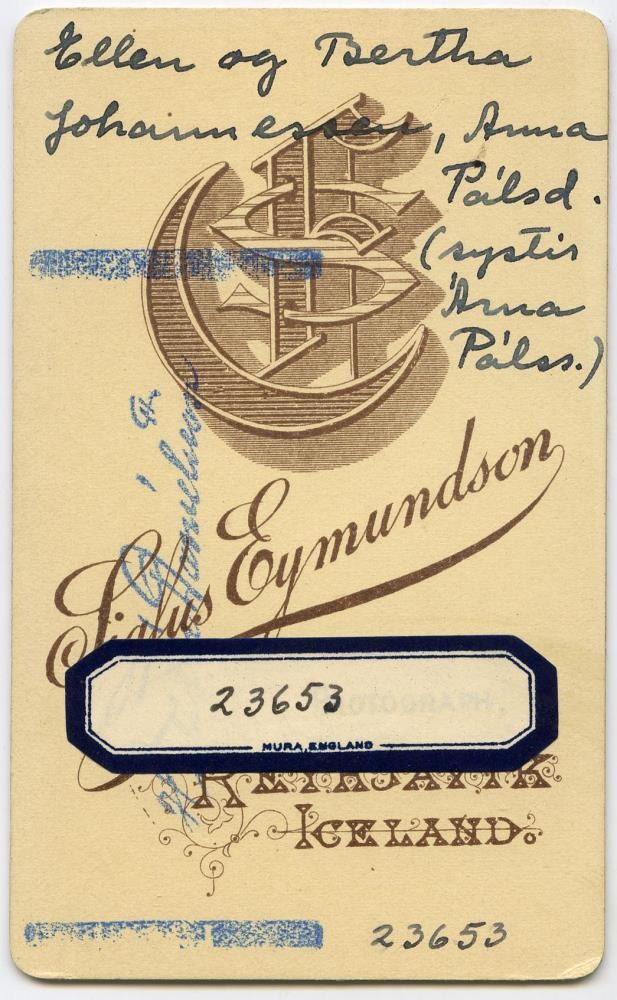 Ellen og Bertha
Johannessen, Anna
Pálsd.
(systir
Árna
Pálss.)
Sigfús Eymundson
PHOTOGRAPH.
23653
MURA, ENGLAND
REYKJAVIK
ICELAND.
23653